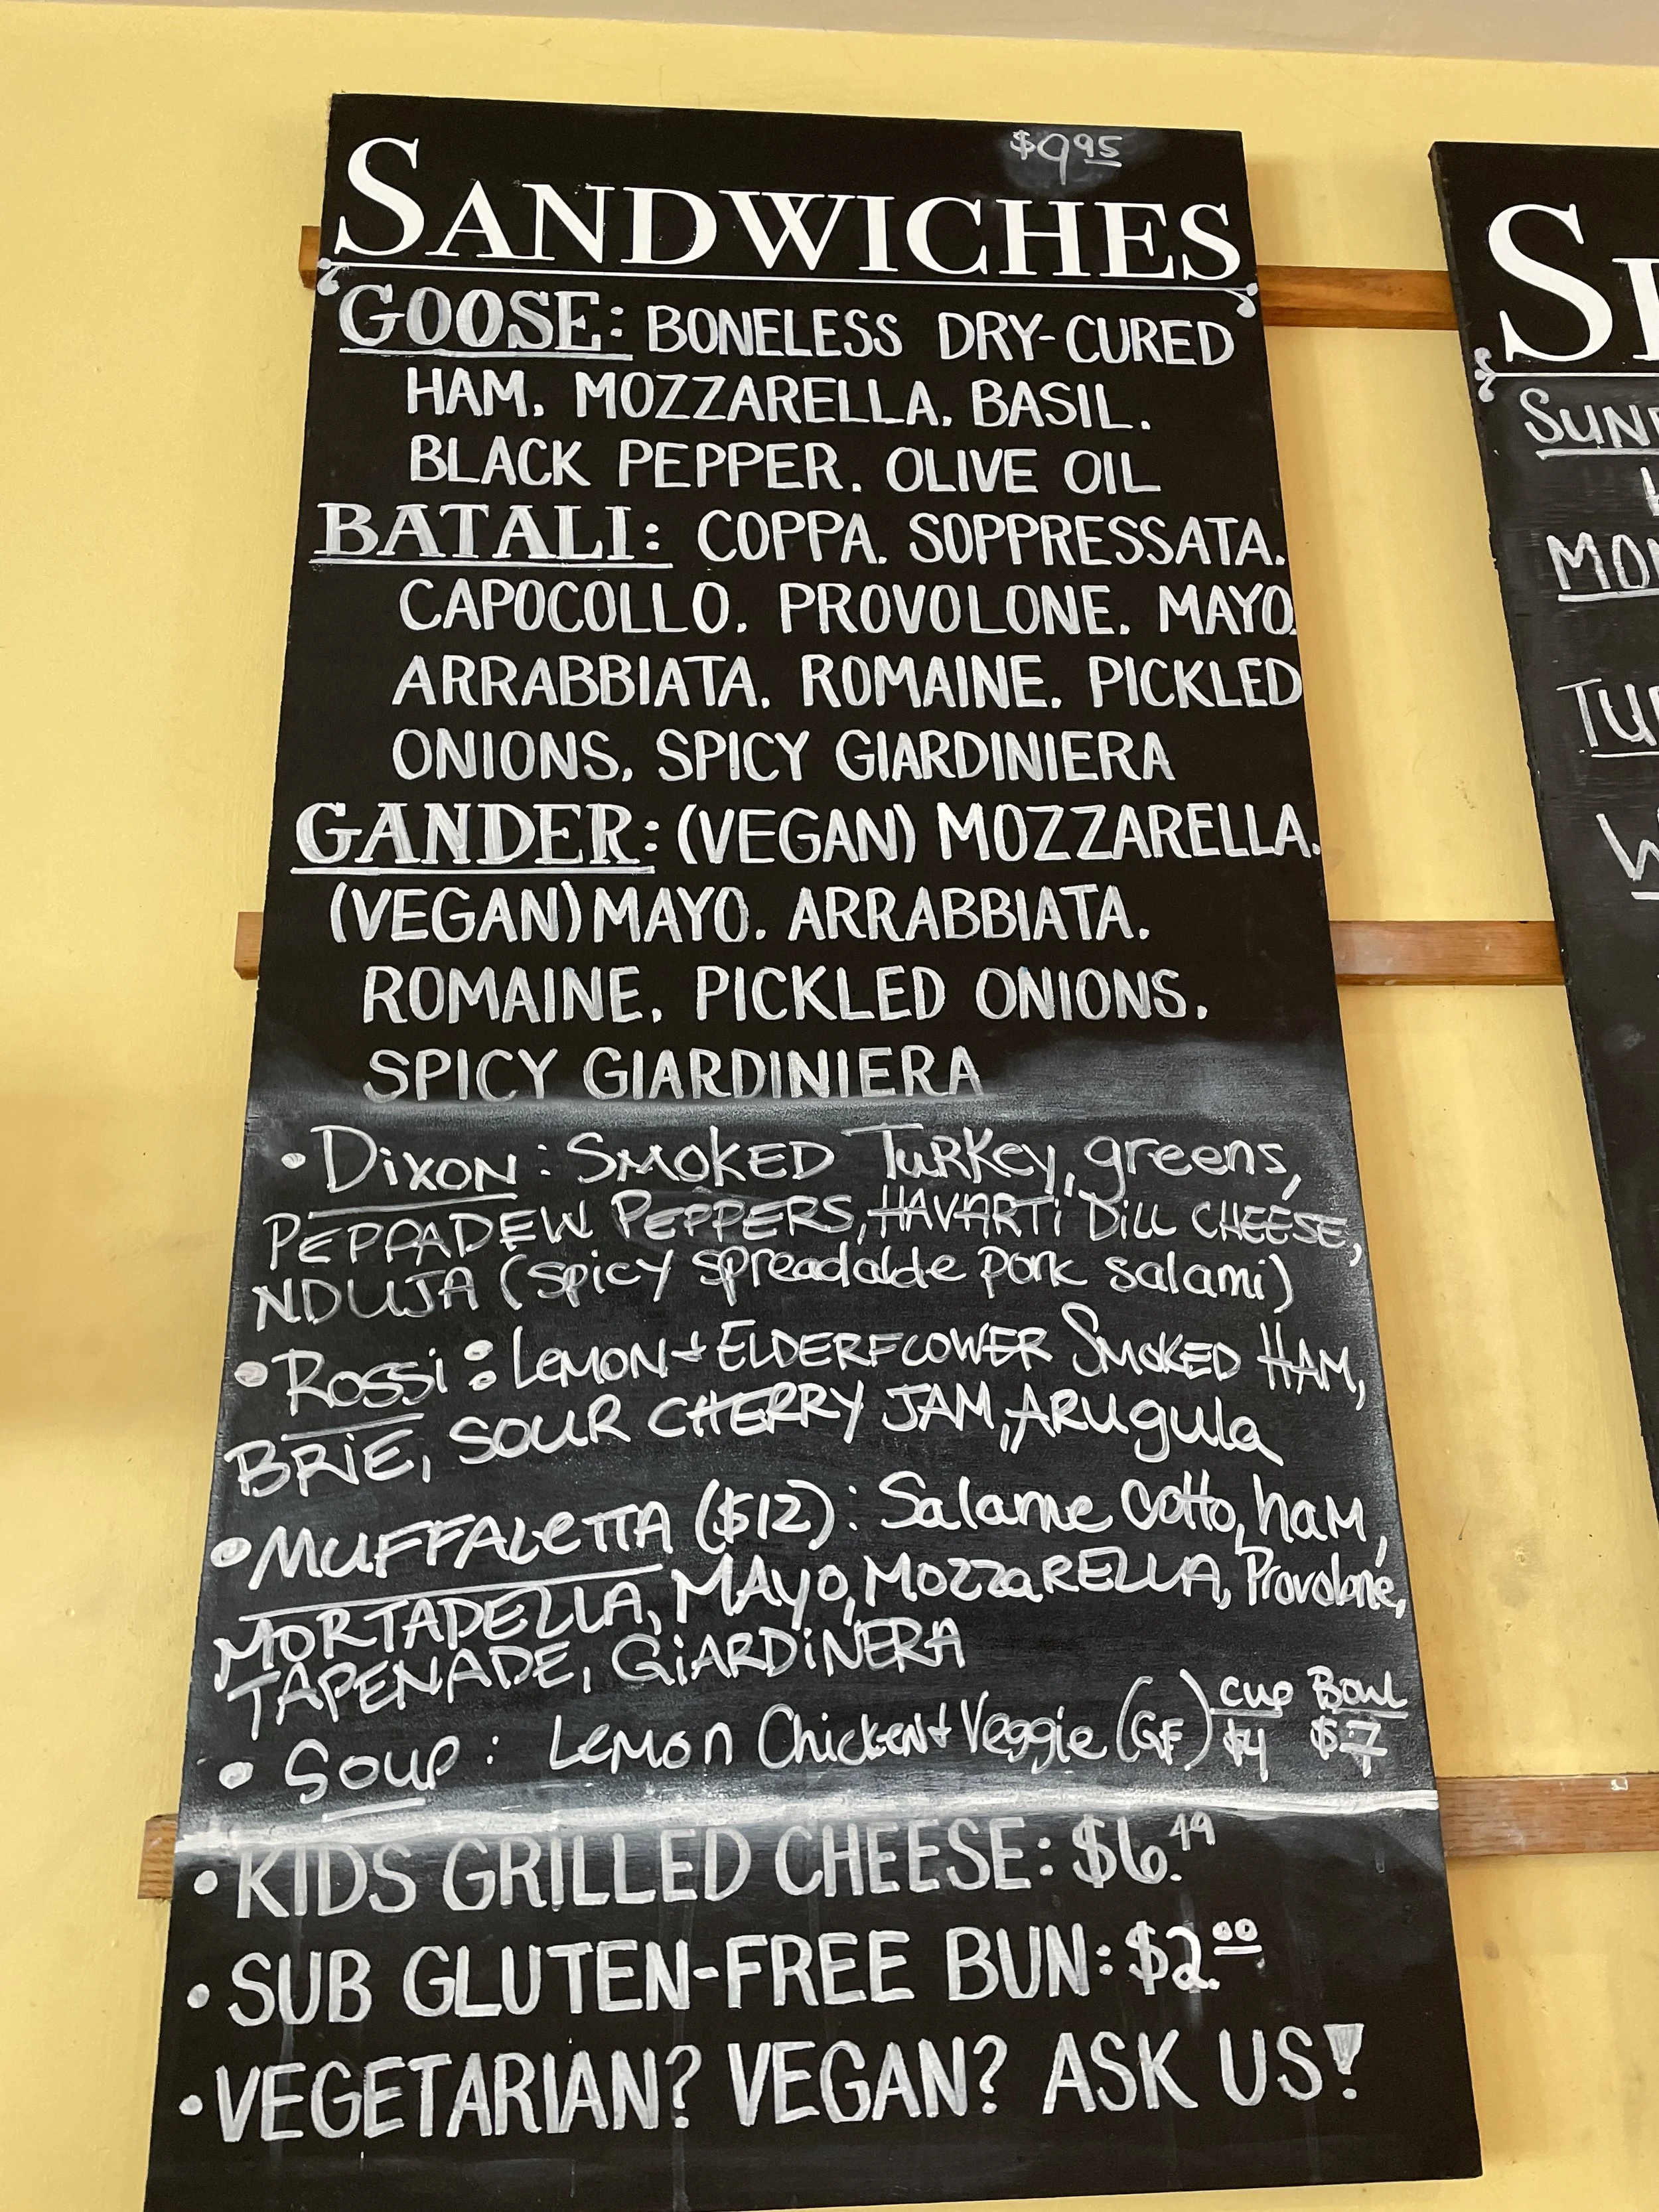 $9.95
SANDWICHES
GOOSE: BONELESS DRY-CURED
HAM. MOZZARELLA. BASIL.
BLACK PEPPER. OLIVE OIL
BATALI: COPPA. SOPPRESSATA.
CAPOCOLLO. PROVOLONE. MAYO.
ARRABBIATA. ROMAINE. PICKLED
ONIONS. SPICY GIARDINIERA
GANDER: (VEGAN) MOZZARELLA.
(VEGAN) MAYO. ARRABBIATA.
ROMAINE. PICKLED ONIONS.
SPICY GIARDINIERA
• DixoN: SMOKED TuRKey, greens,
PEPPADEW PEPPERS, HAVARTi DiLL CHEESE,
NDUJA (spicy spreadable pork salami)
• Rossi: LEMON + ELDERFLOWER SMOKED HAM,
BRiE, SOUR CHERRY JAM, ARugula
• MUFFALeTTA ($12): Salame cotto, haM,
MORTADELLA, MAYO, MOZZaRELLA, Provolone,
TAPENADE, GiARDiNERA
• Soup: LeMon Chicken + Veggie (GF) cup Bowl
$4 $7
• KIDS GRILLED CHEESE: $6.49
• SUB GLUTEN-FREE BUN: $2.00
• VEGETARIAN? VEGAN? ASK US!
S
SUN
MON
TU
W